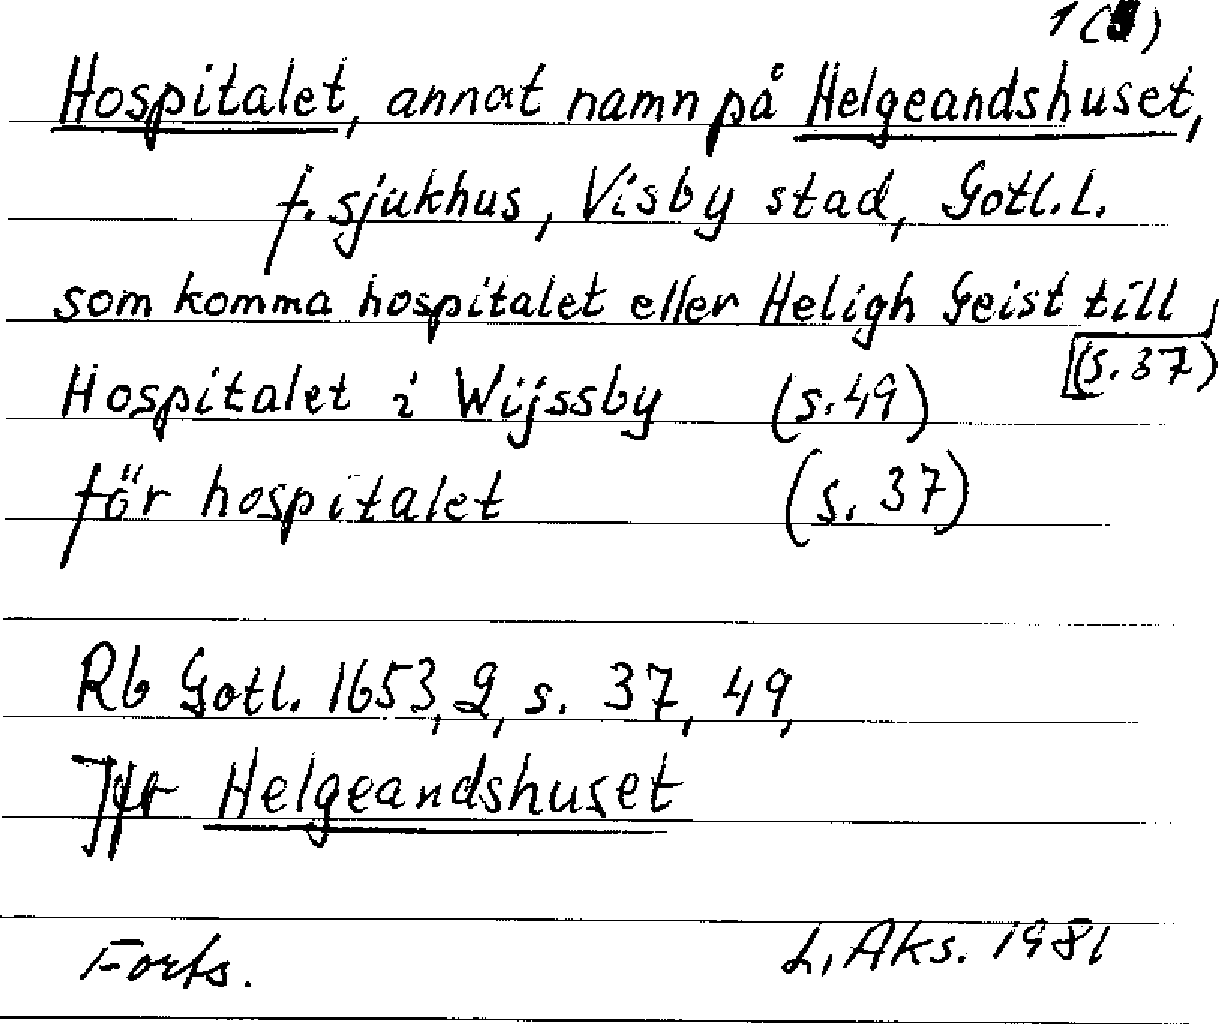 1( )
Hospitalet, annat namn på Helgeandshuset,
f. sjukhus, Visby stad, Gotl.l.
som komma hospitalet eller Heligh Geist till
(s. 37)
Hospitalet i Wijssby (s. 49)
för hospitalet (s. 37)
Rb Gotl. 1653, 2, s. 37, 49,
Jfr Helgeandshuset
Forts. L, Aks. 1981